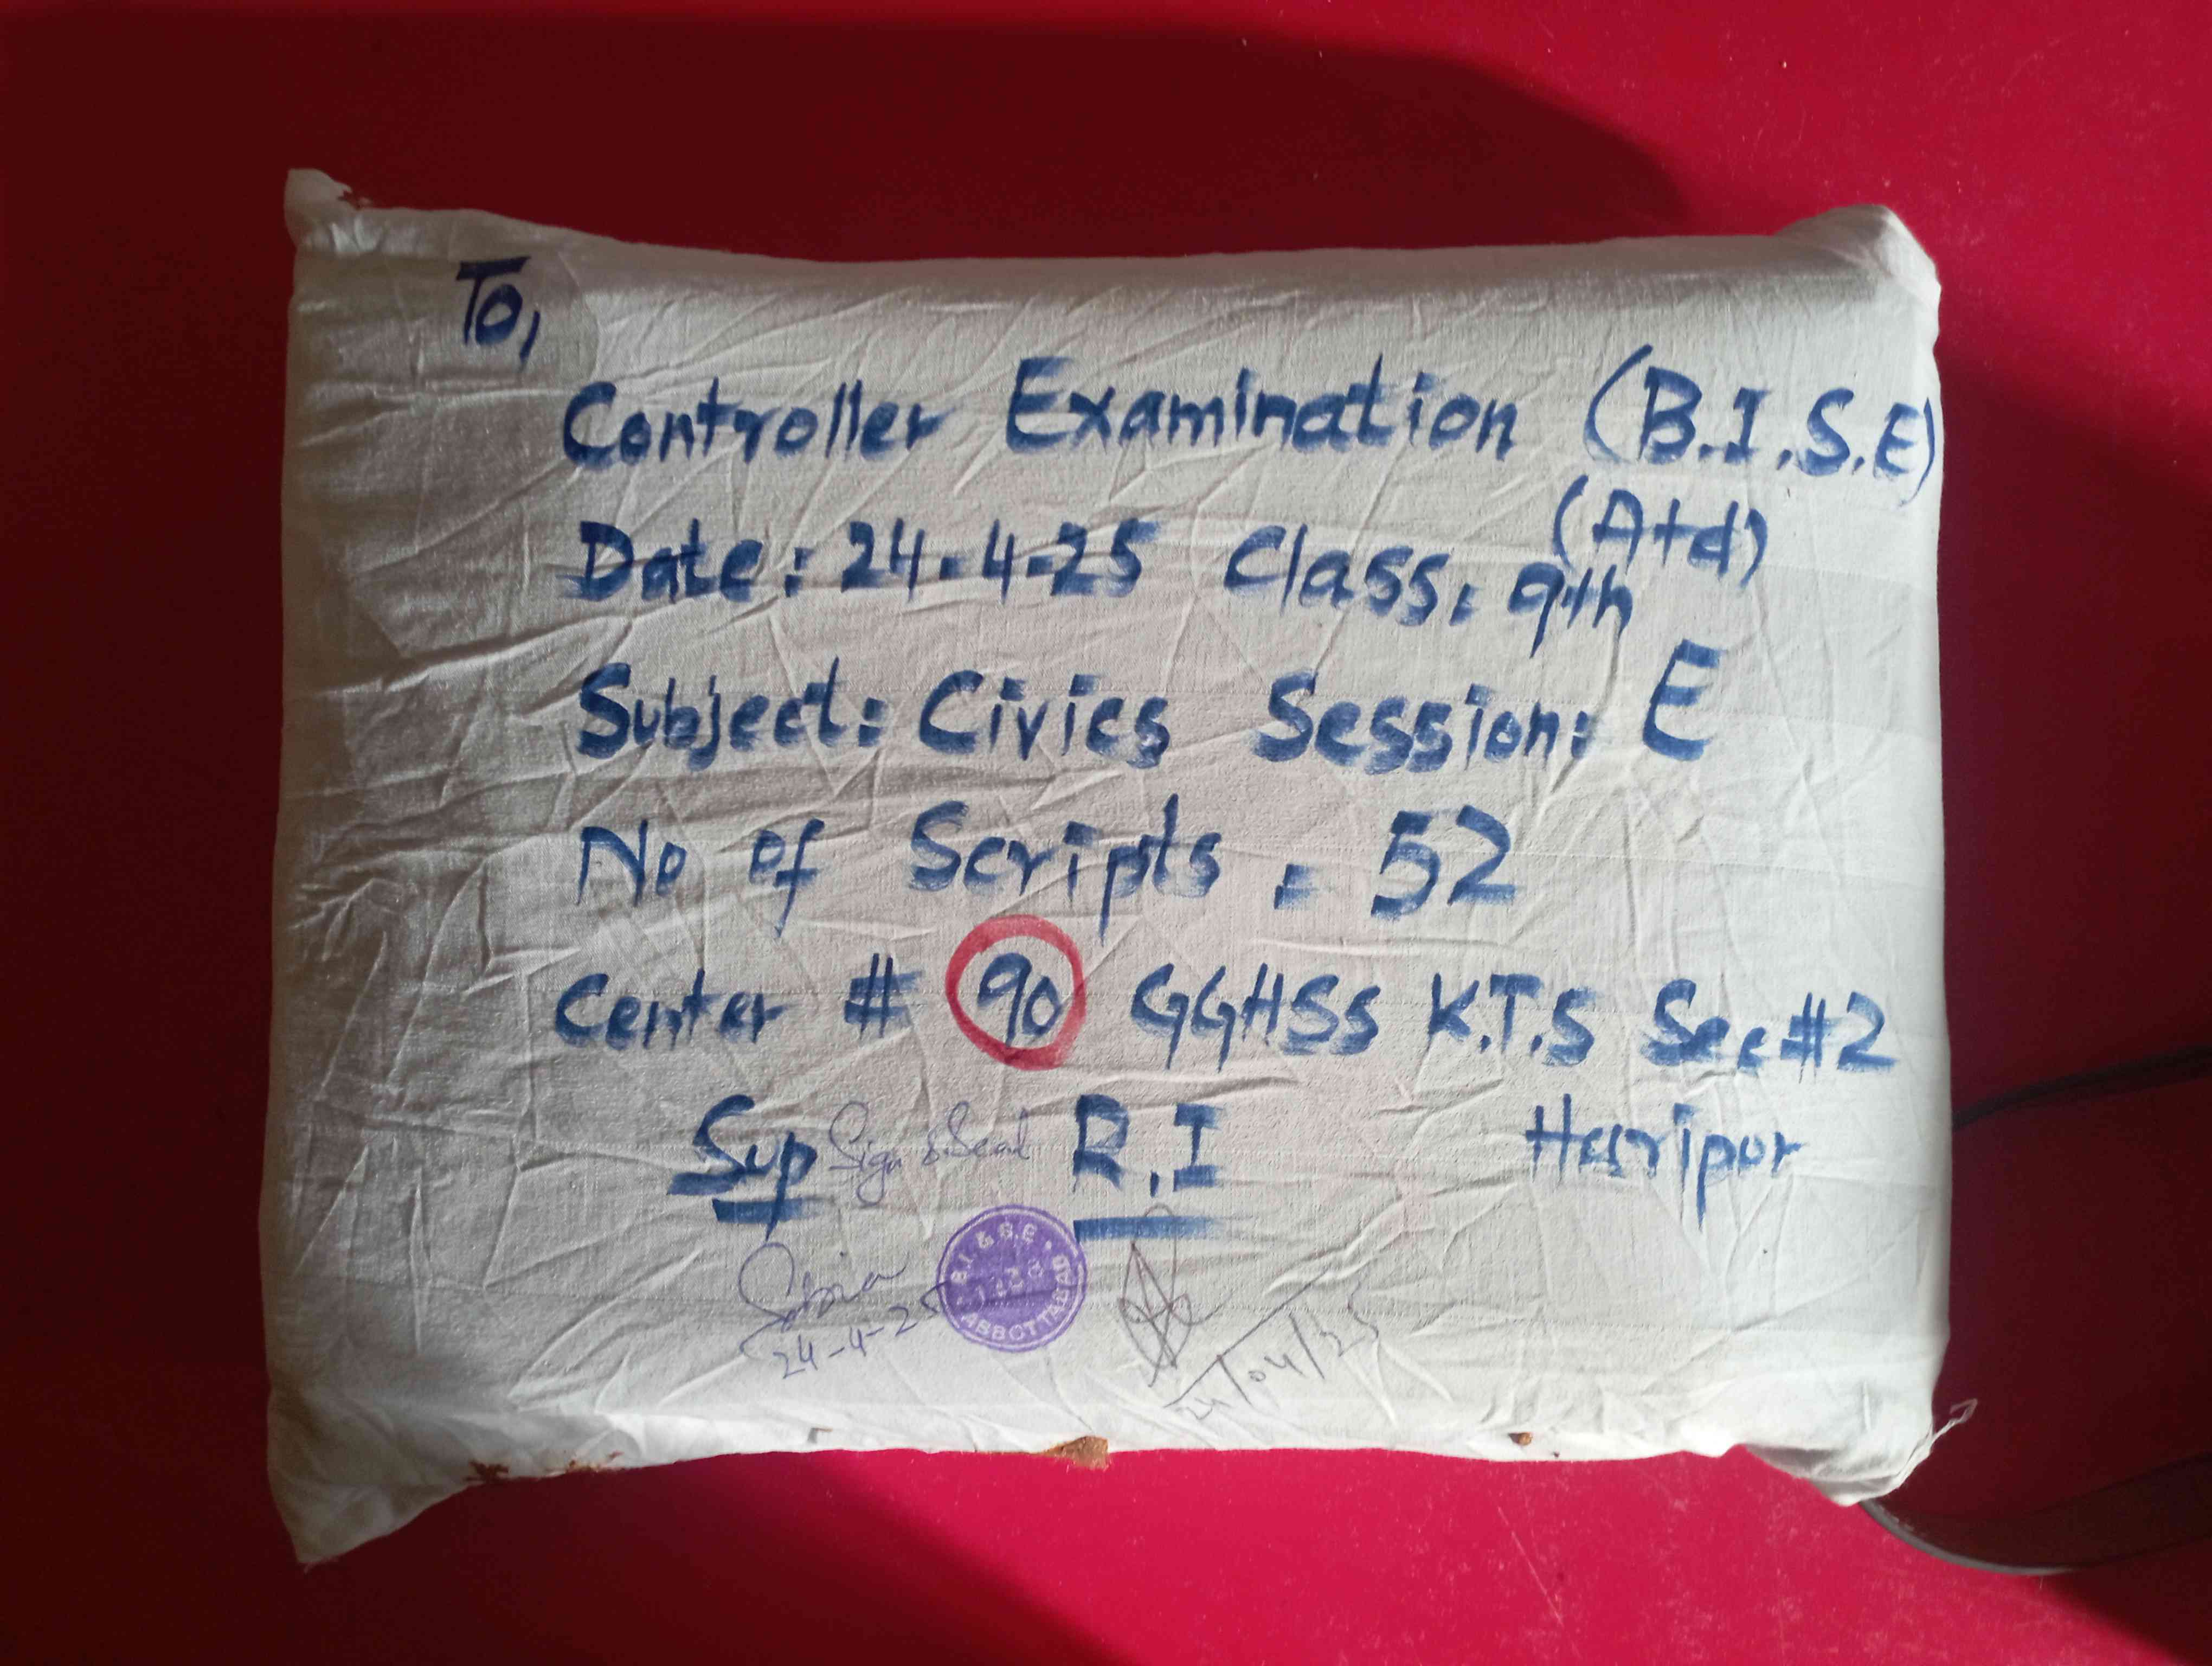 To,
Controller Examination (B.I.S.E)
(Atd)
Date: 24-4-25 Class: 9th
Subject: Civics Session: E
No of Scripts = 52
Center # 90 GGHSS K.T.S Sec#2
Sup Sign & Seal R.I Haripur
B.I. & S.E.
ABBOTTABAD
Sobia
24-4-25
24/04/25